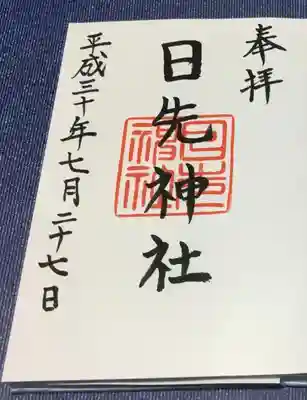 奉拝
日先神社
平成三十年七月二十七日